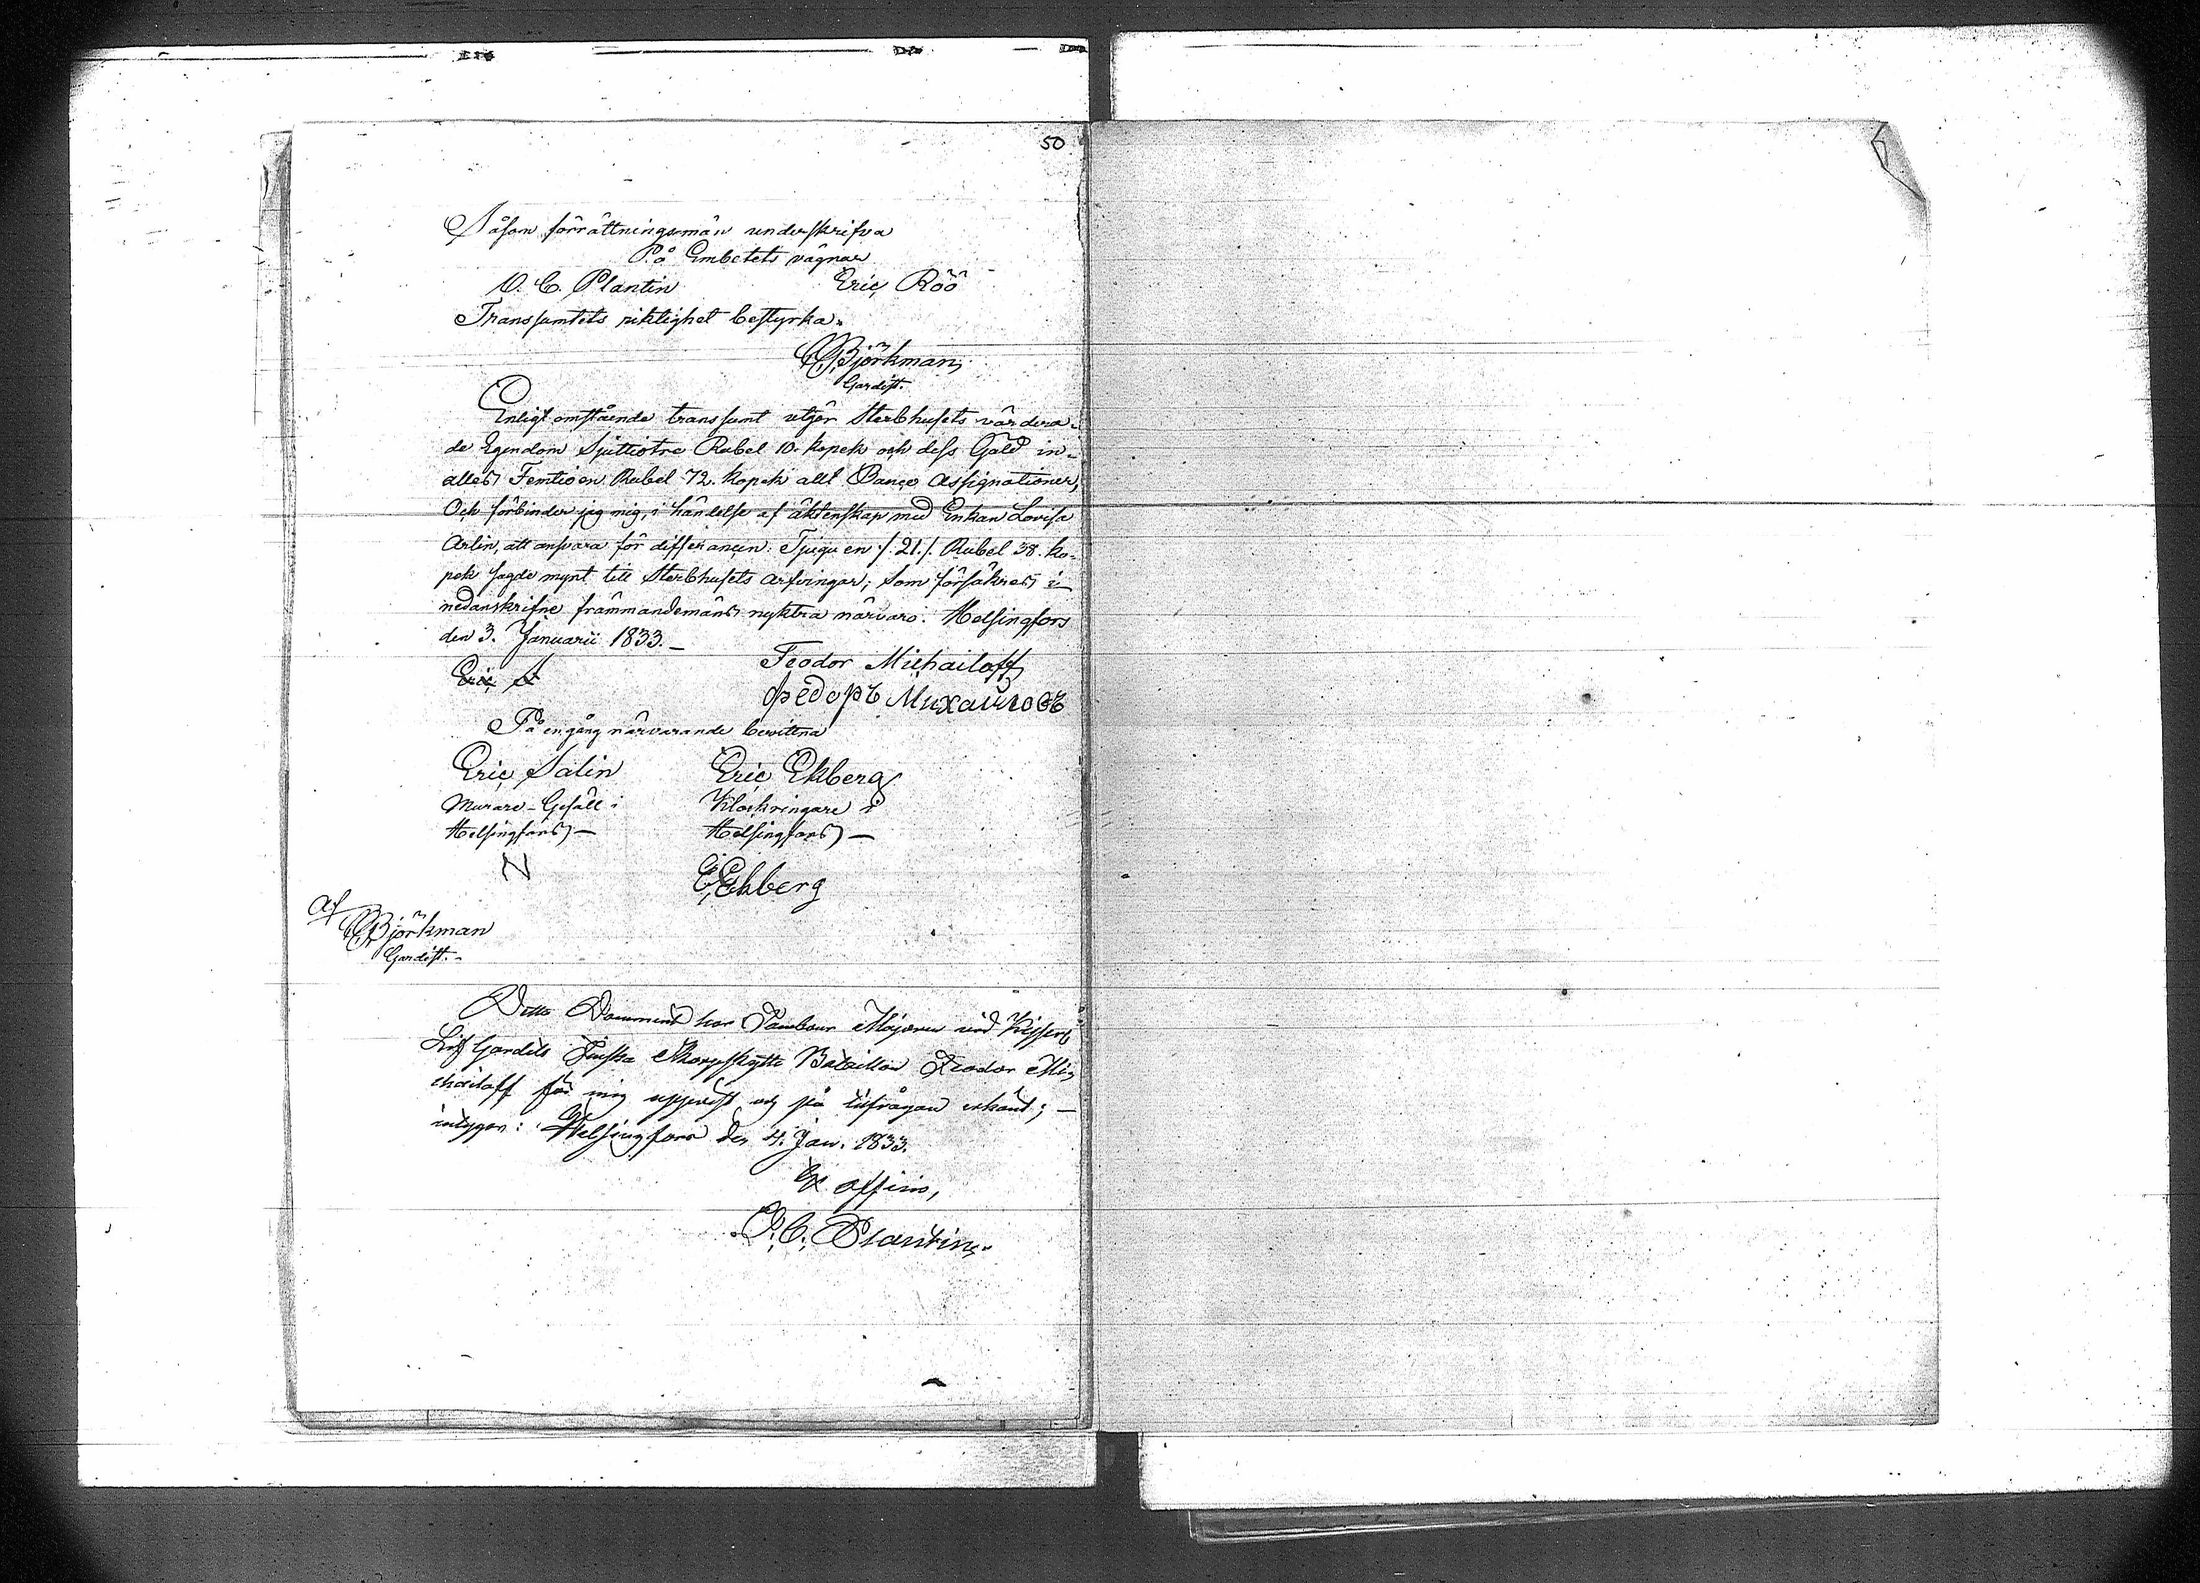 50
Såsom förrättningsmän underskrifva
På Embetets vägnar
O. C. Plantin Eric Röö
Transsumtets riktighet bestyrka.
C. G. Björkman,
Gardist.
Enligt omstående transsumt utgör Sterbhusets värdera-
de Egendom Sjuttiotre Rubel 10. kopek och dess Gäld in-
alles Femtioen Rubel 72. kopek allt Banco Assignationer,
Och förbinder jag mig, i händelse af äktenskap med Enkan Lovisa
Arlin, att ansvara för differancen: Tjuguen /: 21. / Rubel 38. ko-
pek sagde mynt till Sterbhusets arfvingar; Som försäkras i
nedanskrifne främmandemäns nyktra närvaro. Helsingfors
den 3. Januarii 1833. —
Eric S
Feodor Michailoff
Федоръ Михайловъ
På en gång närvarande bevittna
Eric Salin Eric Ekberg
Murare-Gesäll i Klockringare i
Helsingfors — Helsingfors —
N E. Ekberg
af
Björkman
Gardist. -
Detta Document har Tambour Majoren vid Kejserl.
Lif Gardets Finska Skarpskytte Bataillon Feodor Mi-
chailoff för mig uppvist och på tilfrågan erkänt; —
intygar: Helsingfors den 4. Jan. 1833.
Ex officio,
O. C. Plantin.